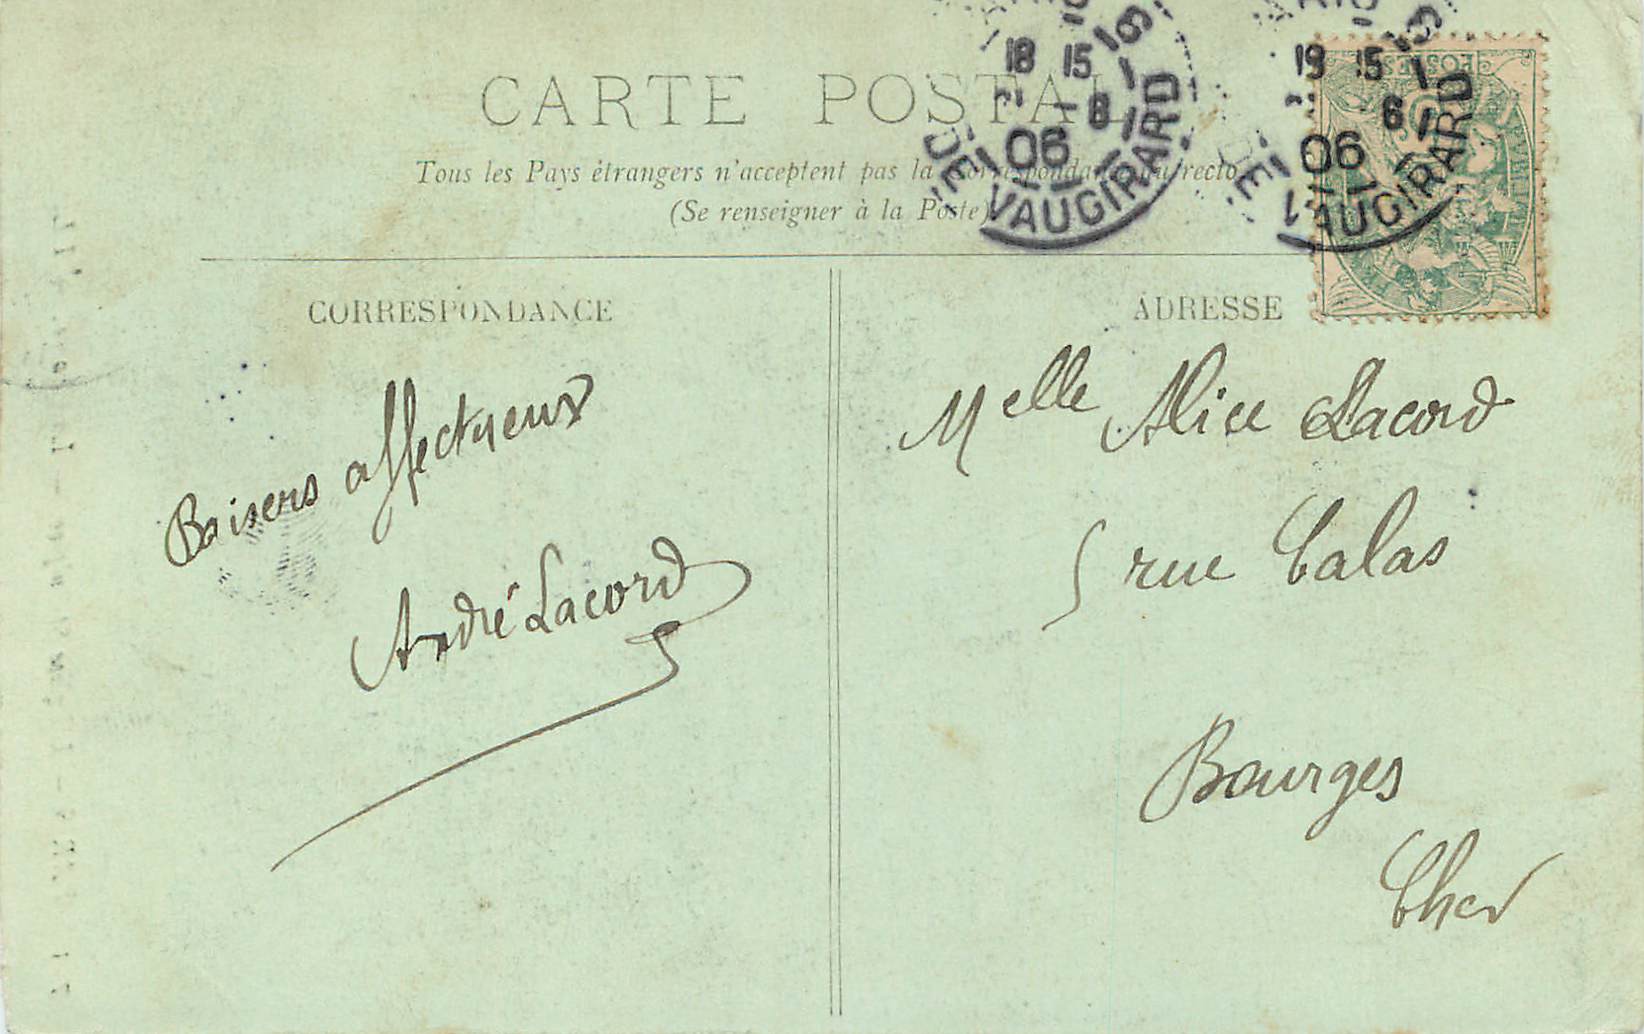 CARTE POSTALE
Tous les Pays étrangers n'acceptent pas la Correspondance au recto
(Se renseigner à la Poste)
18 15
8
06
DE VAUGIRARD
19 15
6
06
VAUGIRARD
POSTES
CORRESPONDANCE
Baisers affectueux
André Lacord
ADRESSE
Melle Alice Lacord
5 rue Calas
Bourges
Cher